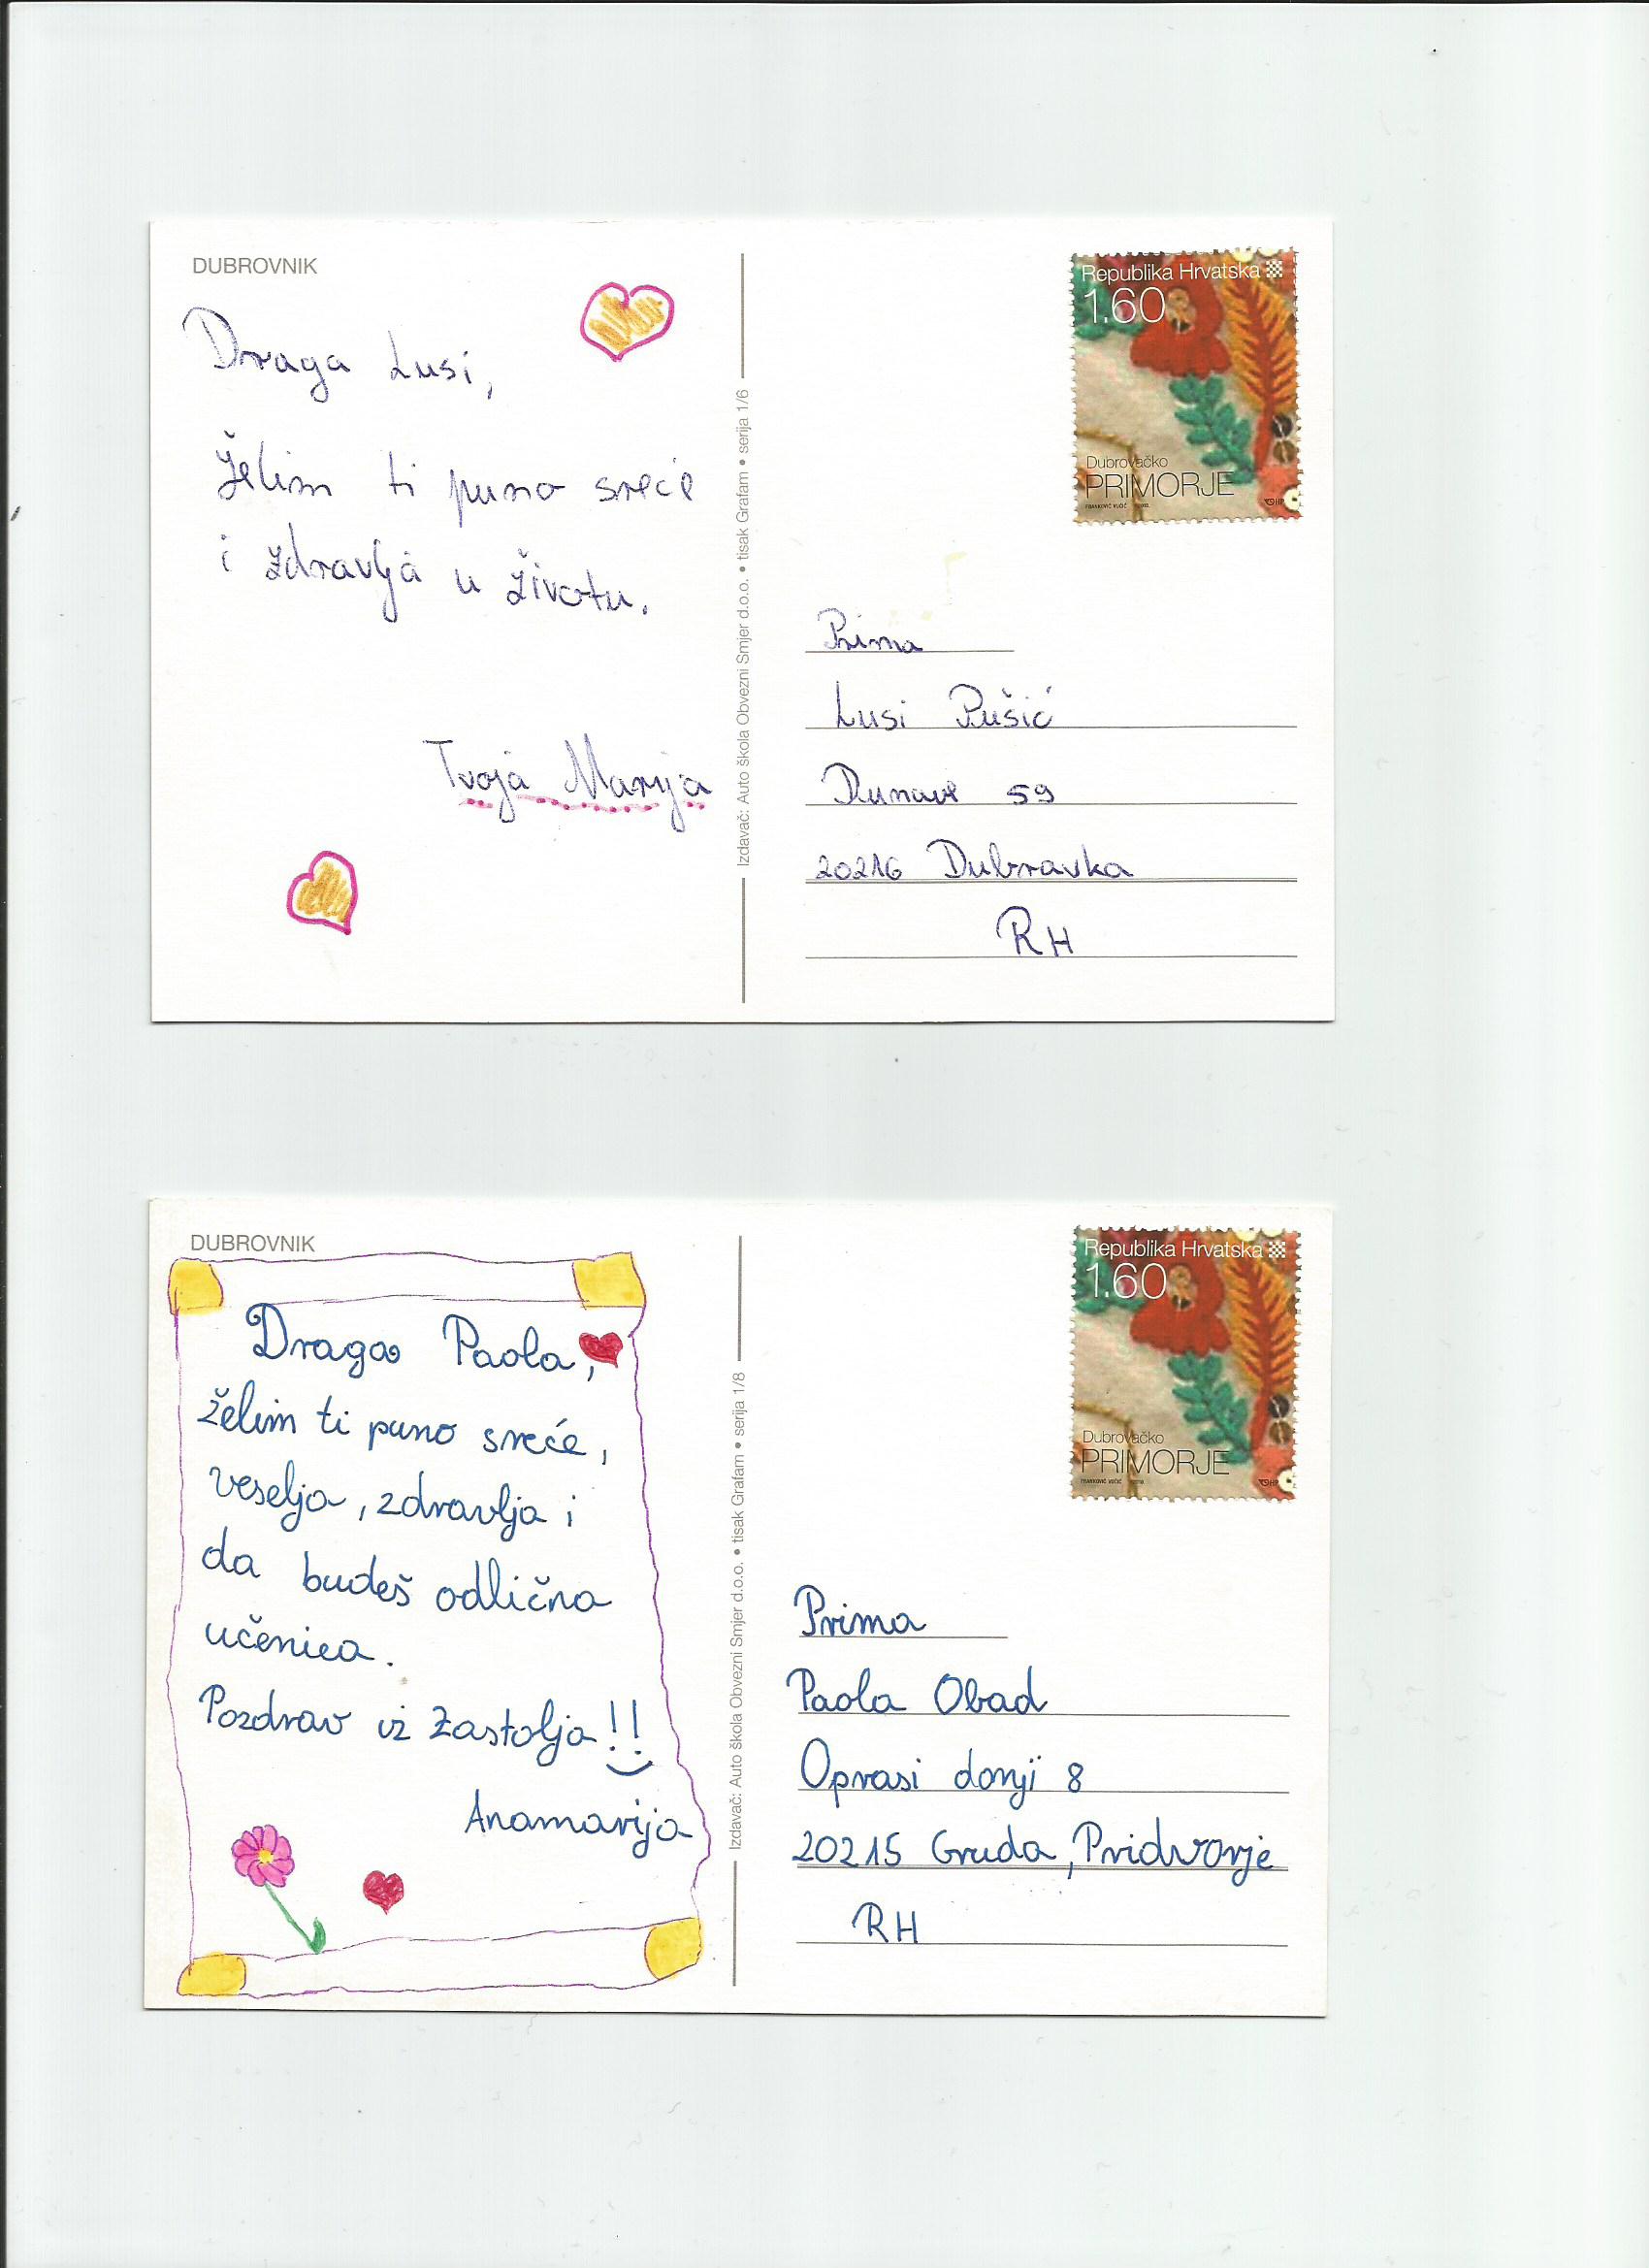 DUBROVNIK
Draga Lusi,
želim ti puno sreće
i zdravlja u životu.
Tvoja Marija
Izdavač: Auto škola Obvezni Smjer d.o.o. • tisak Grafam • serija 1/6
Republika Hrvatska
1.60
Dubrovačko
PRIMORJE
Prima
Lusi Pušić
Dunave 59
20216 Dubravka
RH
DUBROVNIK
Draga Paola,
želim ti puno sreće,
veselja, zdravlja i
da budeš odlična
učenica.
Pozdrav iz Zastolja!!
Anamarija
Izdavač: Auto škola Obvezni Smjer d.o.o. • tisak Grafam • serija 1/8
Republika Hrvatska
1.60
Dubrovačko
PRIMORJE
Prima
Paola Obad
Oprasi donji 8
20215 Gruda, Pridvorje
RH